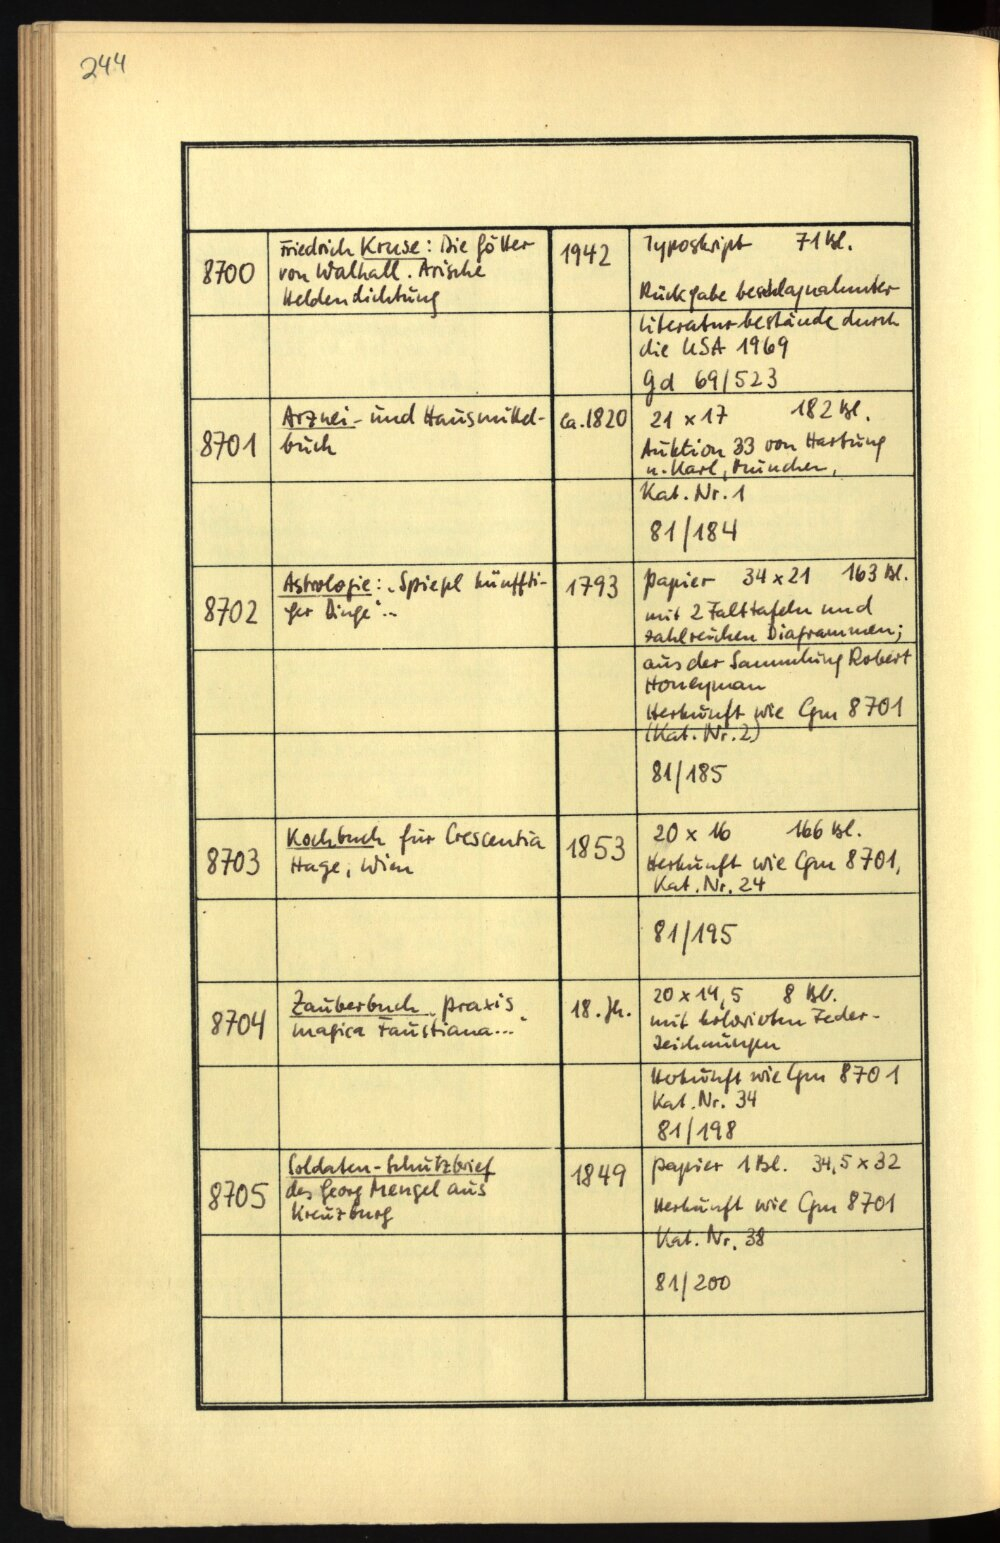 244
8700
Friedrich Kruse: Die Götter
von Walhall. Arische
Heldendichtung
1942
Typoskript 71 Bl.
Rückgabe beschlagnahmter
Literaturbestände durch
die USA 1969
Gd 69/523
8701
Arznei- und Hausmittel-
buch
ca. 1820
21 x 17 182 Bl.
Auktion 33 von Hartung
u. Karl, München,
Kat. Nr. 1
81/184
8702
Astrologie: „Spiegl künffti-
ger Dinge"..
1793
Papier 34 x 21 163 Bl.
mit 2 Falttafeln und
zahlreichen Diagrammen;
aus der Sammlung Robert
Honeyman
Herkunft wie Cgm 8701
(Kat. Nr. 2)
81/185
8703
Kochbuch für Crescentia
Hage, Wien
1853
20 x 16 166 Bl.
Herkunft wie Cgm 8701,
Kat. Nr. 24
81/195
8704
Zauberbuch „Praxis
magica Faustiana..."
18. Jh.
20 x 14,5 8 Bl.
mit kolorierten Feder-
zeichnungen
Herkunft wie Cgm 8701
Kat. Nr. 34
81/198
8705
Soldaten-Schutzbrief
des Georg Mengel aus
Kreuzburg
1849
Papier 1 Bl. 34,5 x 32
Herkunft wie Cgm 8701
Kat. Nr. 38
81/200